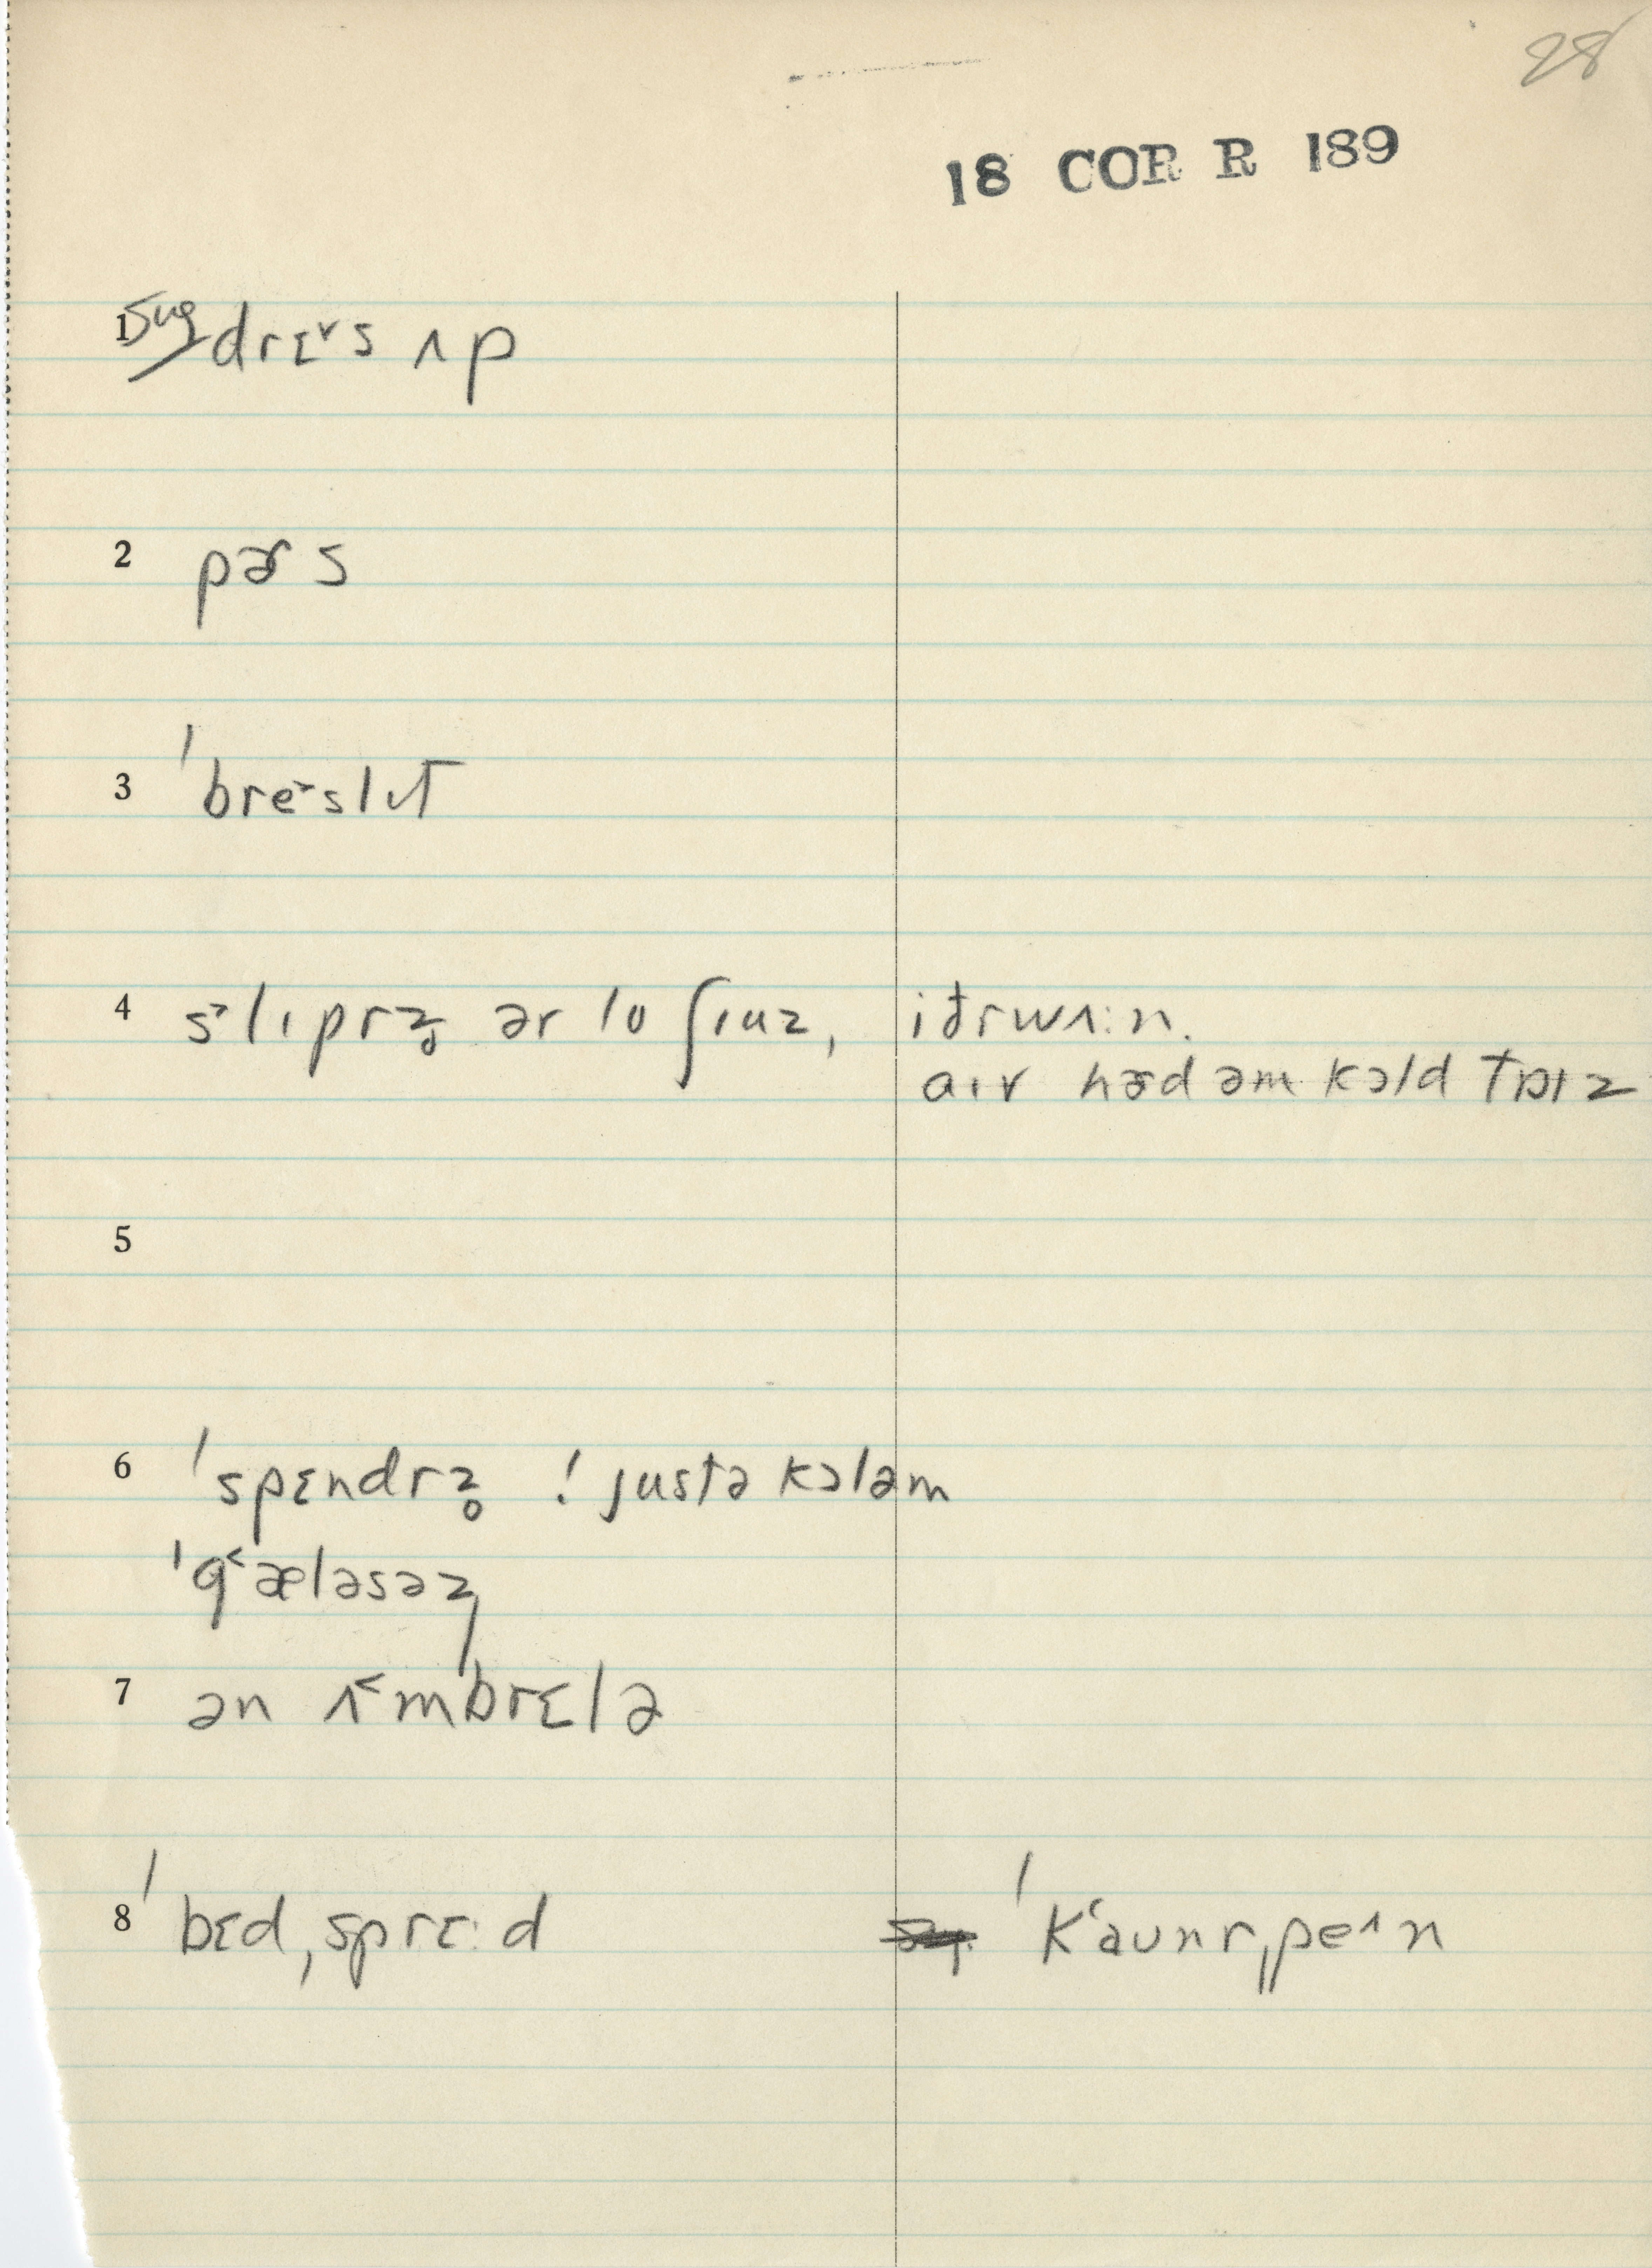 28
18 COR R 189
1 sug drɛ˅s ʌp
2 pɚs
3 ˈbre˃slɩt
4 s˃lɩprz̥ ər lo ʃɩuz, iðr wʌ:n.
aɩv hɚd əm kɔld tɒɩz
5
6 ˈspɛndrz̥ ! justə kɔləm
ˈg˂æləsəz
7 ən ʌ˂mbrɛlə
8 ˈbɛdˌsprɛ:d ˈk˂aʊnrˌpe˄n